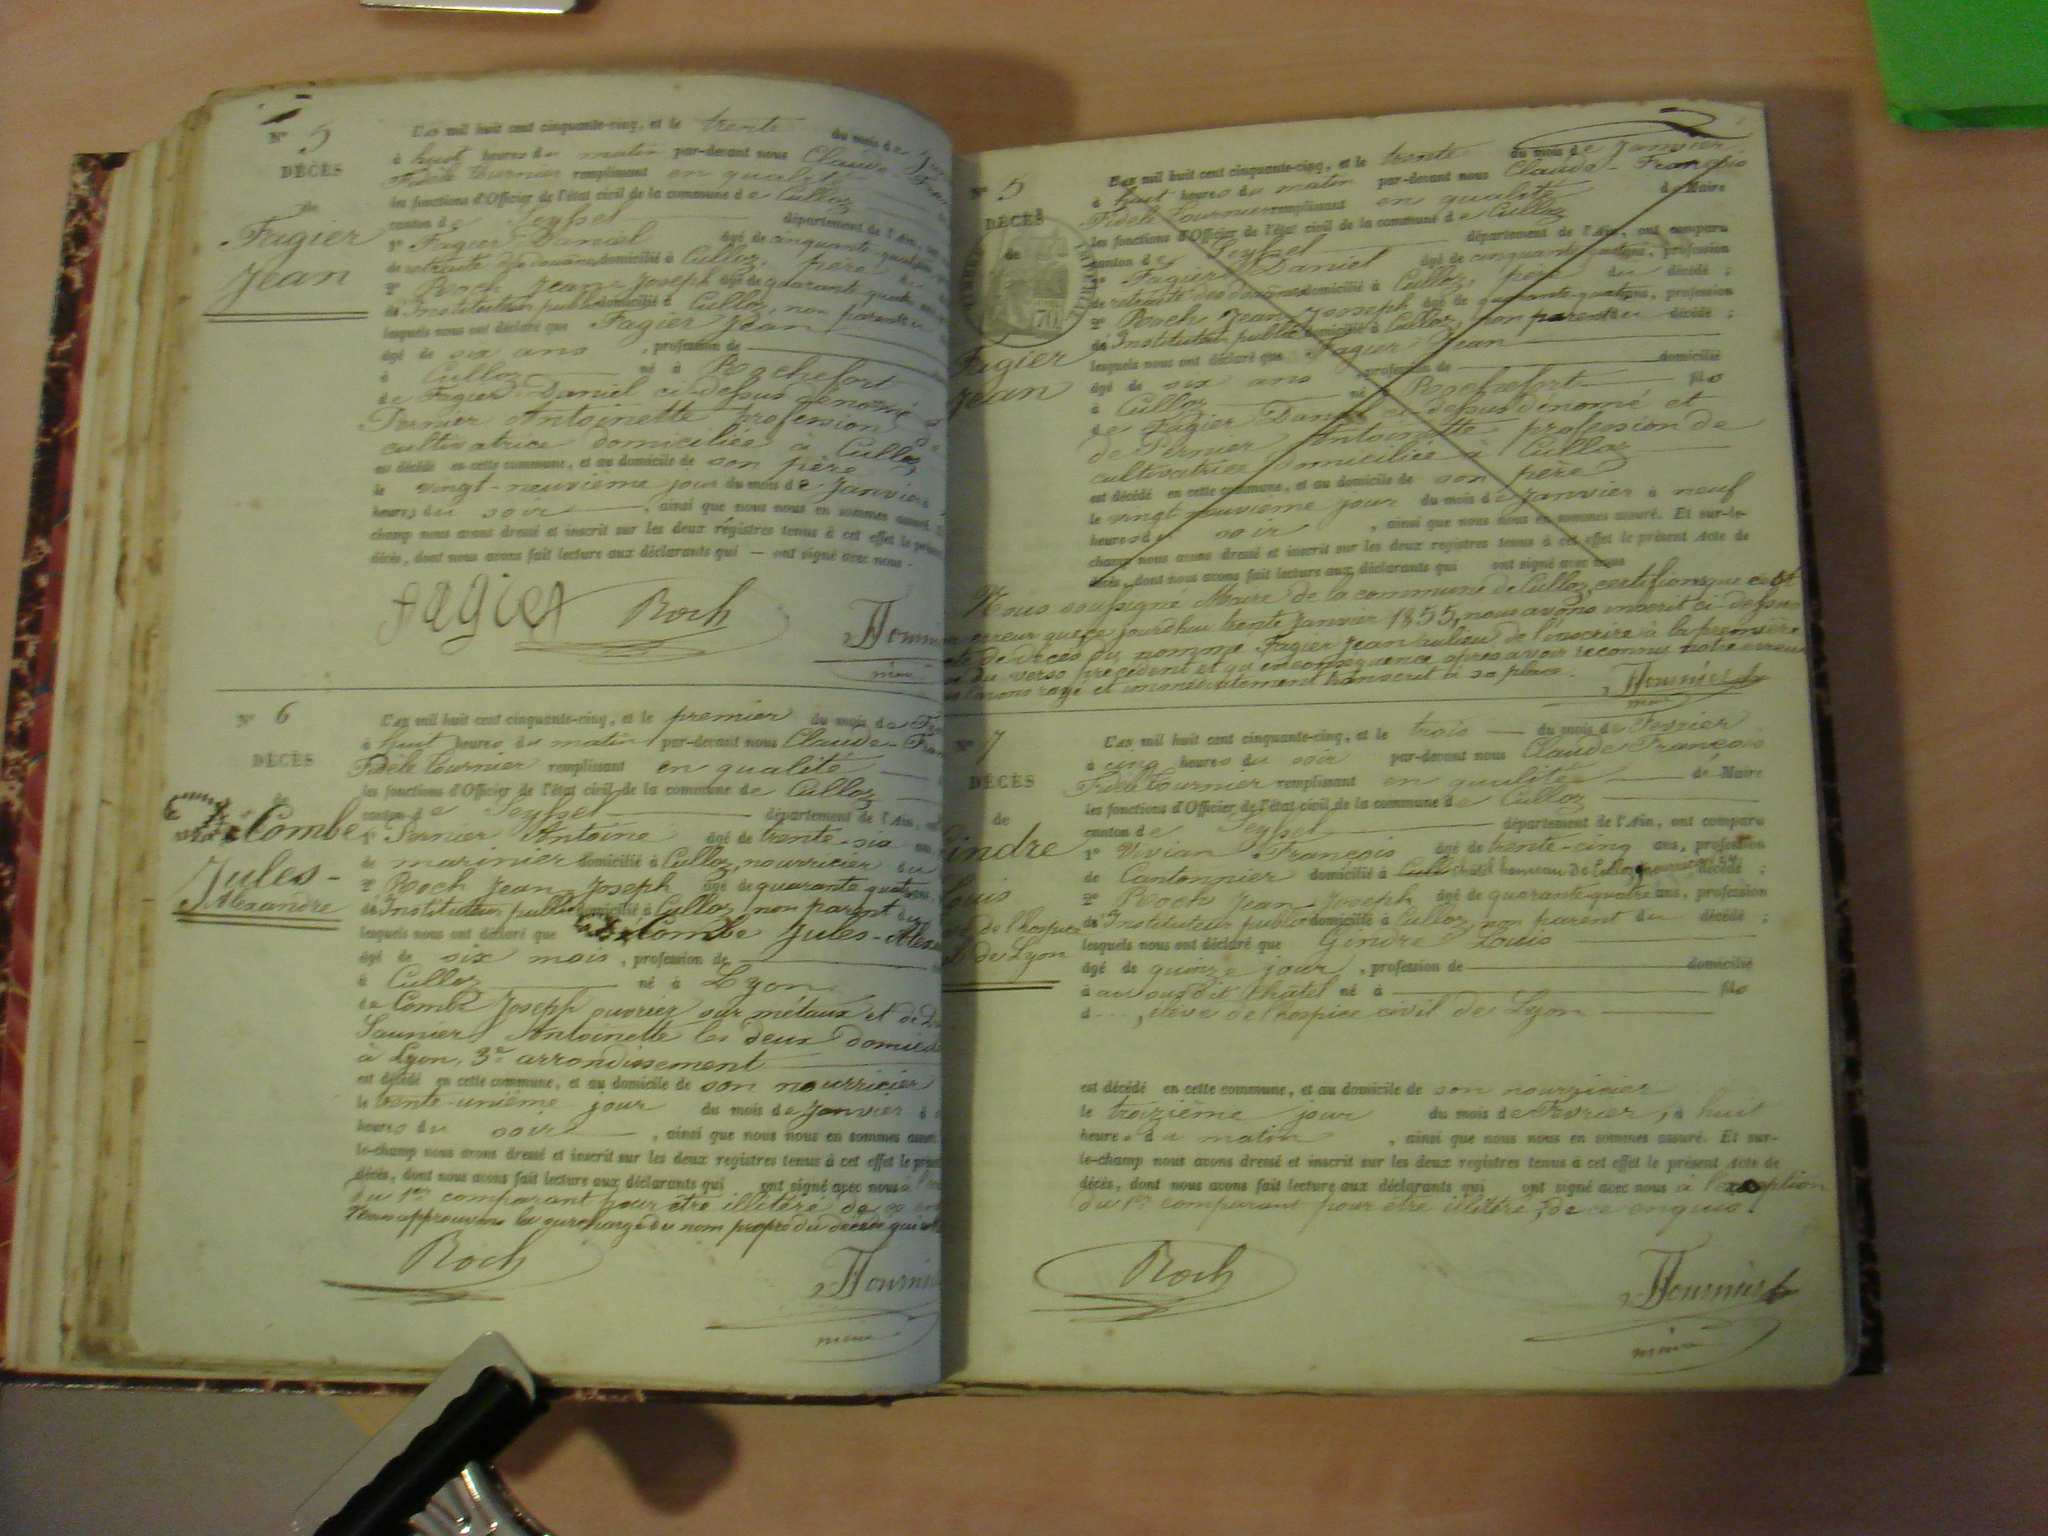 N° 5
DÉCÈS
de
Fagier
Jean
L'an mil huit cent cinquante-cinq, et le trente du mois de
à huit heures du matin par-devant nous Claude
Fidèle Tournier remplissant en qualité
les fonctions d'Officier de l'état civil de la commune de Culloz
canton de Seyssel département de l'Ain,
1° Fagier Daniel âgé de cinquante-quatre
de retraité des douanes domicilié à Culloz, père du
2° Roch Jean-Joseph âgé de quarante-quatre
de Instituteur public domicilié à Culloz, non parent du
lesquels nous ont déclaré que Fagier Jean
âgé de six ans , profession de
à Culloz né à Rochefort
de Fagier Daniel ci-dessus dénomé
Pernier Antoinette profession
cultivatrice domiciliée à Culloz
est décédé en cette commune, et au domicile de son père
le vingt-neuvième jour du mois de Janvier
heures du soir , ainsi que nous nous en sommes assuré.
champ nous avons dressé et inscrit sur les deux registres tenus à cet effet le présent
décès, dont nous avons fait lecture aux déclarants qui — ont signé avec nous.
Fagier Roch Tournier
N° 6
DÉCÈS
de
Combe
Jules-
Alexandre
L'an mil huit cent cinquante-cinq, et le premier du mois de
à huit heures du matin par-devant nous Claude-
Fidèle Tournier remplissant en qualité
les fonctions d'Officier de l'état civil de la commune de Culloz
canton de Seyssel département de l'Ain,
1° Pernier Antoine âgé de trente-six
de marinier domicilié à Culloz, nourricier du
2° Roch Jean-Joseph âgé de quarante-quatre
de Instituteur public domicilié à Culloz, non parent du
lesquels nous ont déclaré que Combe Jules-
âgé de six mois , profession de
à Culloz né à Lyon
de Combe Joseph ouvrier sur métaux et de
Saunier Antoinette les deux
à Lyon, 3e arrondissement
est décédé en cette commune, et au domicile de son nourricier
le trente-unième jour du mois de Janvier à
heures du soir , ainsi que nous nous en sommes assuré.
le-champ nous avons dressé et inscrit sur les deux registres tenus à cet effet le présent
décès, dont nous avons fait lecture aux déclarants qui ont signé avec nous
du 1er comparant pour être illitéré de ce
Nous approuvons la surcharge du nom propre du décédé
Roch Tournier
maire
N° 5
DÉCÈS
de
Fagier
Jean
L'an mil huit cent cinquante-cinq, et le trente du mois de Janvier
à huit heures du matin par-devant nous Claude-François
Fidèle Tournier remplissant en qualité de Maire
les fonctions d'Officier de l'état civil de la commune de Culloz
canton de Seyssel département de l'Ain, ont comparu
1° Fagier Daniel âgé de cinquante-quatre ans, profession
de retraité des douanes domicilié à Culloz, père du décédé ;
2° Roch Jean Joseph âgé de quarante-quatre ans, profession
de Instituteur public domicilié à Culloz, non parent du décédé ;
lesquels nous ont déclaré que Fagier Jean
âgé de six ans , profession de domicilié
à Culloz né à Rochefort fils
de Fagier Daniel ci-dessus dénomé et
de Pernier Antoinette profession de
cultivatrice domiciliée à Culloz
est décédé en cette commune, et au domicile de son père
le vingt-neuvième jour du mois de Janvier à neuf
heures du soir , ainsi que nous nous en sommes assuré. Et sur-le-
champ nous avons dressé et inscrit sur les deux registres tenus à cet effet le présent Acte de
décès, dont nous avons fait lecture aux déclarants qui ont signé avec nous
Nous soussigné Maire de la commune de Culloz, certifions que c'est
par erreur que ce jourd'hui trente Janvier 1855, nous avons inscrit ci-dessus
acte de décès du nommé Fagier Jean au lieu de l'inscrire à la première
du verso précédent et qu'en conséquence après avoir reconnu notre erreur
l'avons rayé et immédiatement transcrit à sa place.
Tournier
maire
N° 7
DÉCÈS
de
Gindre
Louis
de l'hospice
de Lyon
L'an mil huit cent cinquante-cinq, et le trois du mois de Fevrier
à cinq heures du soir par-devant nous Claude François
Fidèle Tournier remplissant en qualité de Maire
les fonctions d'Officier de l'état civil de la commune de Culloz
canton de Seyssel département de l'Ain, ont comparu
1° Vivian François âgé de trente-cinq ans, profession
de Cantonnier domicilié à hameau de Culloz décédé ;
2° Roch Jean Joseph âgé de quarante-quatre ans, profession
de Instituteur public domicilié à Culloz, non parent du décédé ;
lesquels nous ont déclaré que Gindre Louis
âgé de quinze jour , profession de domicilié
à né à fils
d , élève de l'hospice civil de Lyon
est décédé en cette commune, et au domicile de son nourricier
le troizième jour du mois de Fevrier, à huit
heures du matin , ainsi que nous nous en sommes assuré. Et sur-
le-champ nous avons dressé et inscrit sur les deux registres tenus à cet effet le présent Acte de
décès, dont nous avons fait lecture aux déclarants qui ont signé avec nous à l'exception
du 1er comparant pour être illitéré, de ce enquis.
Roch Tournier
maire